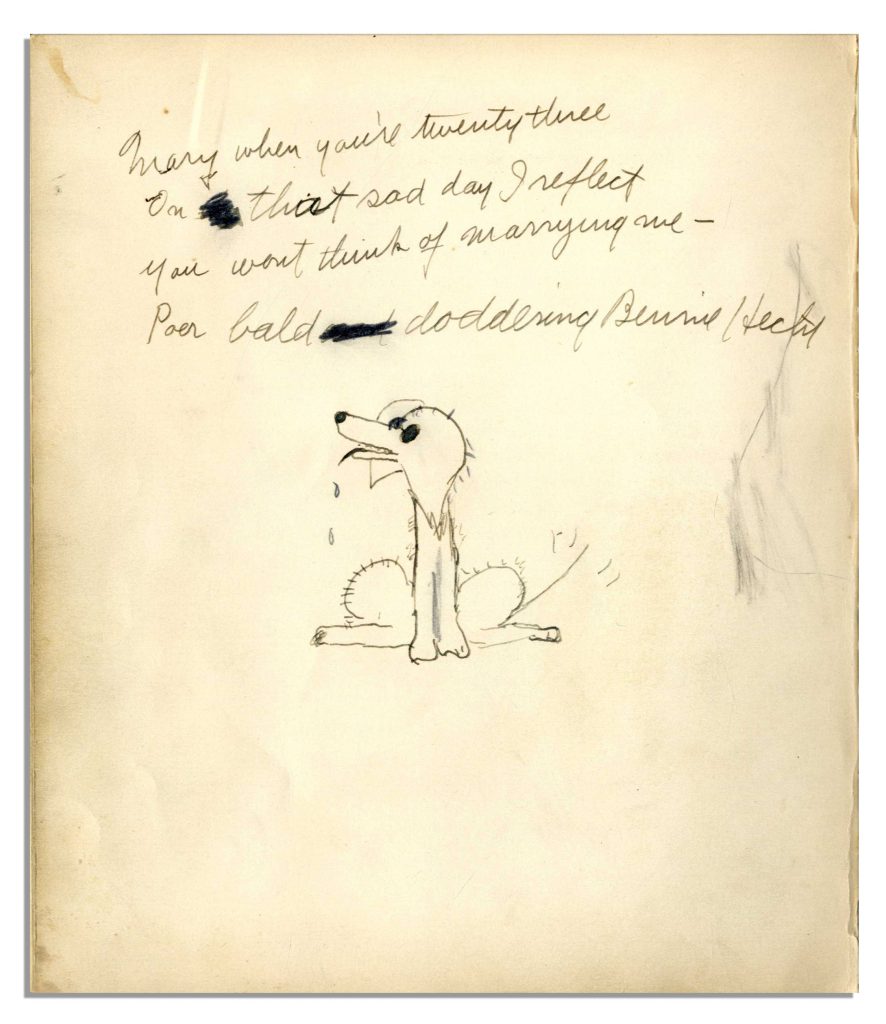 Mary when you're twenty three
On that sad day I reflect
You wont think of marrying me —
Poor bald doddering Bennie Hecht